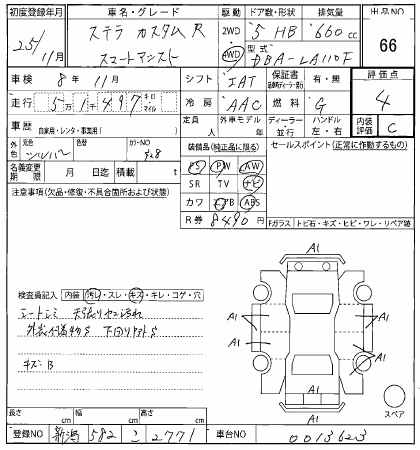 初度登録年月 車名・グレード 駆動 ドア数・形状 排気量 出品NO
25/11月 ステラ カスタム R 2WD 5 HB 660 cc 66
スマートアシスト 4WD 型式 DBA-LA110F
車検 8年 11月 シフト IAT 保証書 有・無 評価点
走行 5万1千497 キロ マイル 冷房 AAC 燃料 G 4
車歴 自家用・レンタ・事業用( ) 定員 人 外車モデル 年 ディーラー 並行 ハンドル 左・右 内装評価 C
外色 元色 シルバー 色替 カラーNO 装備品(純正品に限る) セールスポイント(正常に作動するもの)
PS PW AW
名義変更期限 月 日迄 積載量 t SR TV ナビ
注意事項(欠品・修復・不具合箇所および状態) カワ エアB ABS
R券 8490円
Fガラス トビ石・キズ・ヒビ・ワレ・リペア跡
A1
検査員記入 内装 汚れ・スレ・キズ・キレ・コゲ・穴
A1 A1
シートシミ
A1 A1
キズ:B
A1
スペア
長さ cm 幅 cm 高さ cm
登録NO 新潟 582 こ 2771 車台NO 0013623